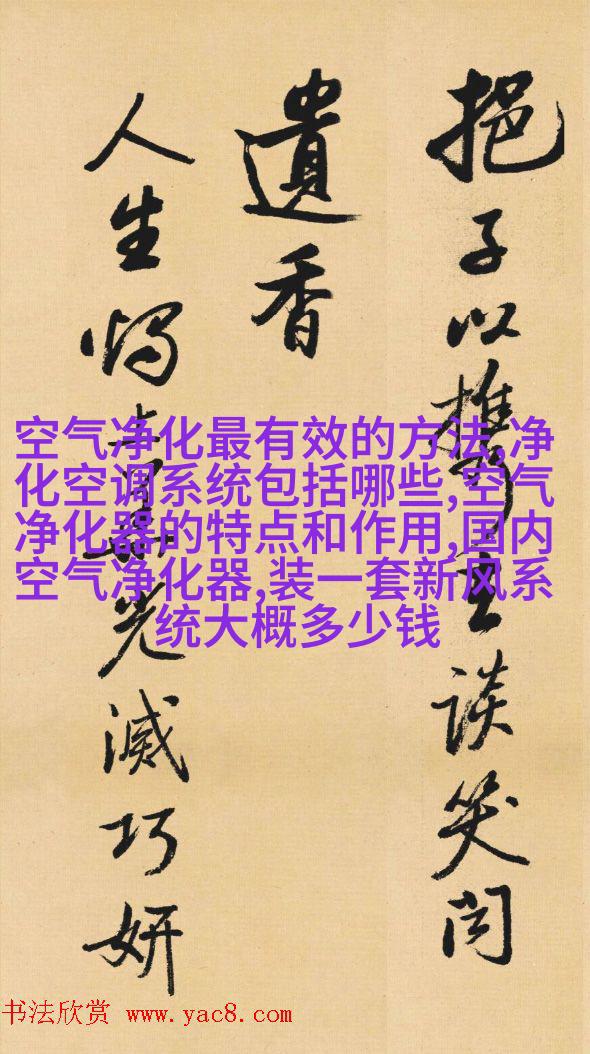 挹子以攜談笑
遺香
人生光滅巧妍
空气净化最有效的方法,净
化空调系统包括哪些,空气
净化器的特点和作用,国内
空气净化器,装一套新风系
统大概多少钱
书法欣赏 www.yac8.com